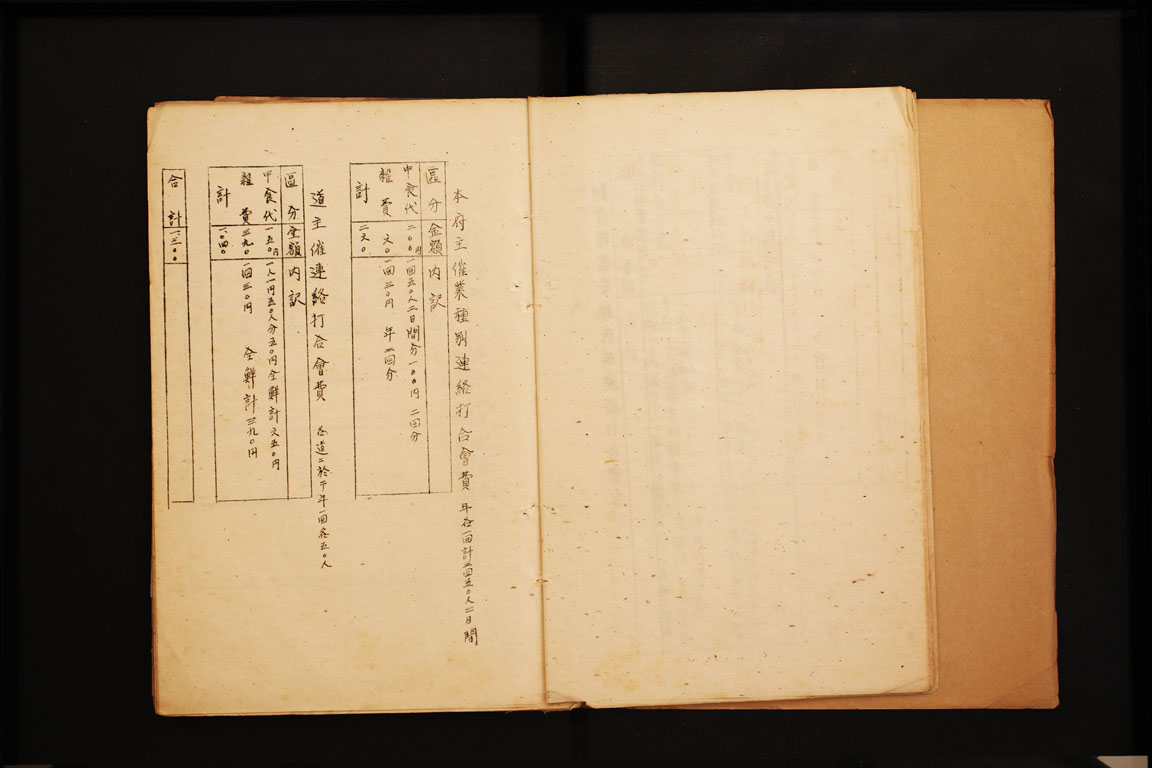 本府主催業種別連絡打合會費 年各一回計二回五〇人二日間
區分 金額 內訳
中食代 二〇〇円 一回五〇人二日間分一〇〇円 二回分
雜費 六〇 一回三〇円 年二回分
計 二六〇
道主催連絡打合會費 各道ニ於テ年一回各五〇人
區分 金額 內訳
中食代 六五〇円 一人一円五〇人分五〇円全鮮計六五〇円
雜費 三九〇 一回三〇円 全鮮計三九〇円
計 一、〇四〇
合計 一、三〇〇